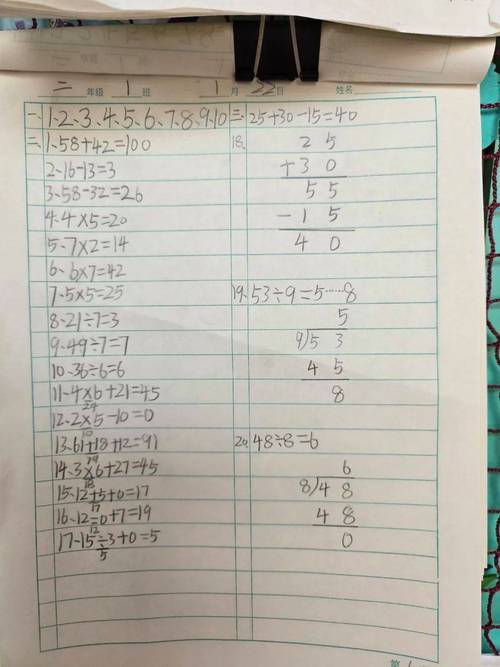 二 年级 1 班 1 月 22 日 姓名
一、1、2、3、4、5、6、7、8、9、10
二、1、58+42=100
2、16-13=3
3、58-32=26
4、4×5=20
5、7×2=14
6、6×7=42
7、5×5=25
8、21÷7=3
9、49÷7=7
10、36÷6=6
11、4×6+21=45
24
12、2×5-10=0
10
13、61+18+12=91
79
14、3×6+27=45
18
15、12+5+0=17
17
16、12-0+7=19
12
17、15÷3+0=5
5
三、25+30-15=40
18、 2 5
+ 3 0
5 5
- 1 5
4 0
19、53÷9=5……8
5
9)5 3
4 5
8
20、48÷8=6
6
8)4 8
4 8
0
第